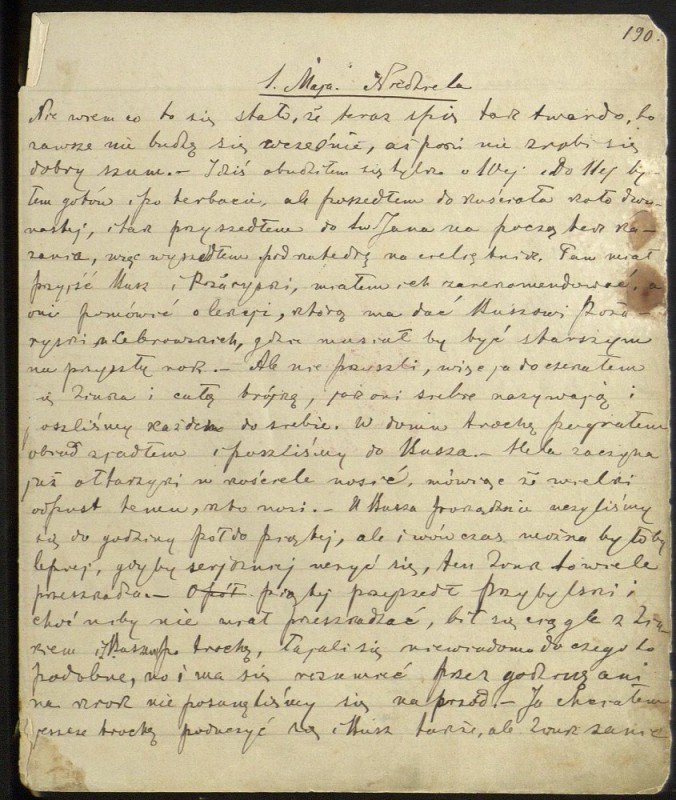 190.
1. Maja. Niedziela
Nie wiem co to się stało, że teraz śpię tak twardo, bo
zawsze nie budzę się wcześnie, aż póki nie zrobi się
dobry szum. – Dziś obudziłem się tylko o 10ej i Do 11ej by-
łem gotów i po herbacie, ale poszedłem do kościoła koło dwu-
nastej, i tak przyszedłem do św Jana na początek ka-
zania, więc wyszedłem pod katedrę na cmentarz. Tam miał
przyjść Kusz i Pożaryski, miałem ich zarekomendować, a
oni pomówić o lekcji, którą ma dać Kuszowi Poża-
ryski u Cebrowskich, gdzie musiał by być starszym
na przyszły rok. – Ale nie przyszli, więc ja doczekałem
się Żonka i całą trójkę, jak oni siebie nazywają i
poszliśmy każden do siebie. W domu trochę pograłem
obiad zjadłem i poszliśmy do Kusza. – Hela zaczyna
już ołtarzyki w kościele nosić, mówiąc że wielki
odpust temu, kto nosi. – U Kusza porządnie uczyliśmy
się do godziny pół do piątej, ale i wówczas można byłoby
lepiej, gdyby seryjoznej uczyć się, ten Żonk to wiele
przeszkadza – O pół piątej przyszedł Przybylski i
choć niby nie miał przeszkadzać, bił się ciągle z Żon-
kiem i Kuszem po trochę, łajali się niewiadomo do czego to
podobne, no i ma się rozumieć przez godzinę ani
na krok nie posunęliśmy się na przód. – Ja chciałem
jeszcze trochę poduczyć się i Kusz także, ale Żonk zanie